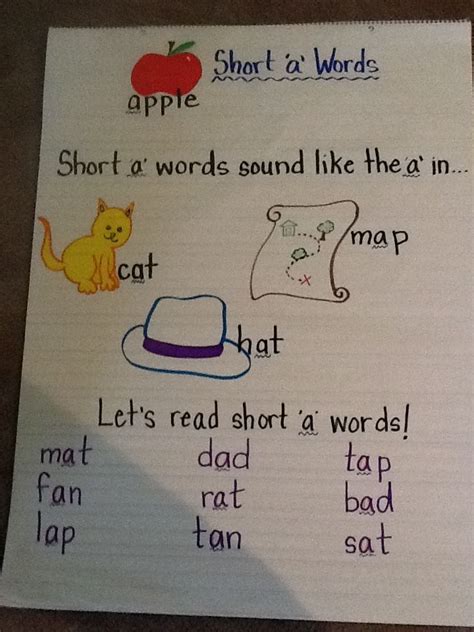 Short 'a' Words
apple
Short 'a' words sound like the 'a' in...
cat
map
hat
Let's read short 'a' words!
mat dad tap
fan rat bad
lap tan sat